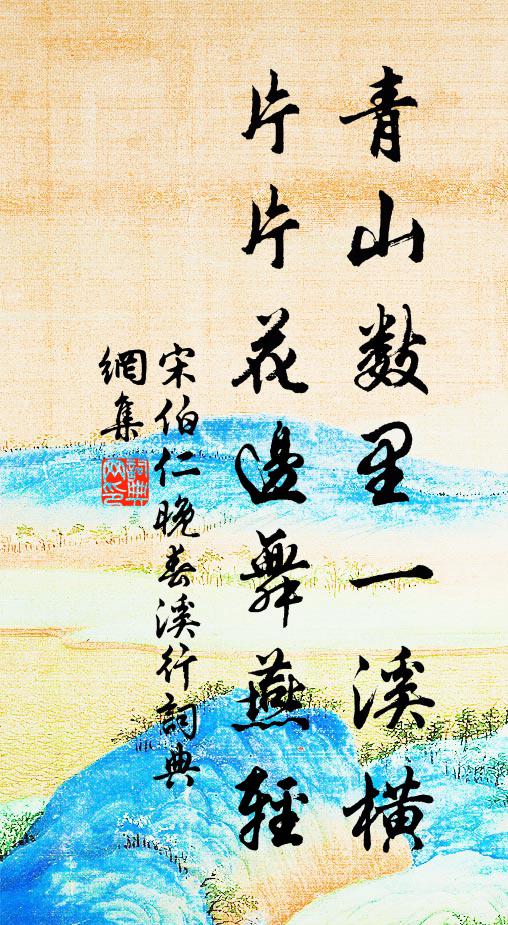 青山数里一溪橫
片片花邊舞燕輕
宋伯仁晚春溪行詞典
網集
詞典
网印